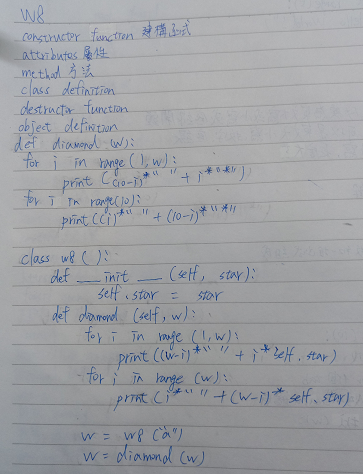 W8
constructor function 建構函式
attributes 屬性
method 方法
class definition
destructor function
object definition
def diamond (w):
for i in range (1, w):
print ((10-i)*" " + i*"*")
for i in range(10):
print((i)*" " + (10-i)*"*")
class w8 ( ):
def __init__ (self, star):
self.star = star
def diamond (self, w):
for i in range (1, w):
print ((w-i)*" " + i*self.star)
for i in range (w):
print (i*" " + (w-i)*self.star)
w = w8 ("a")
w = diamond (w)